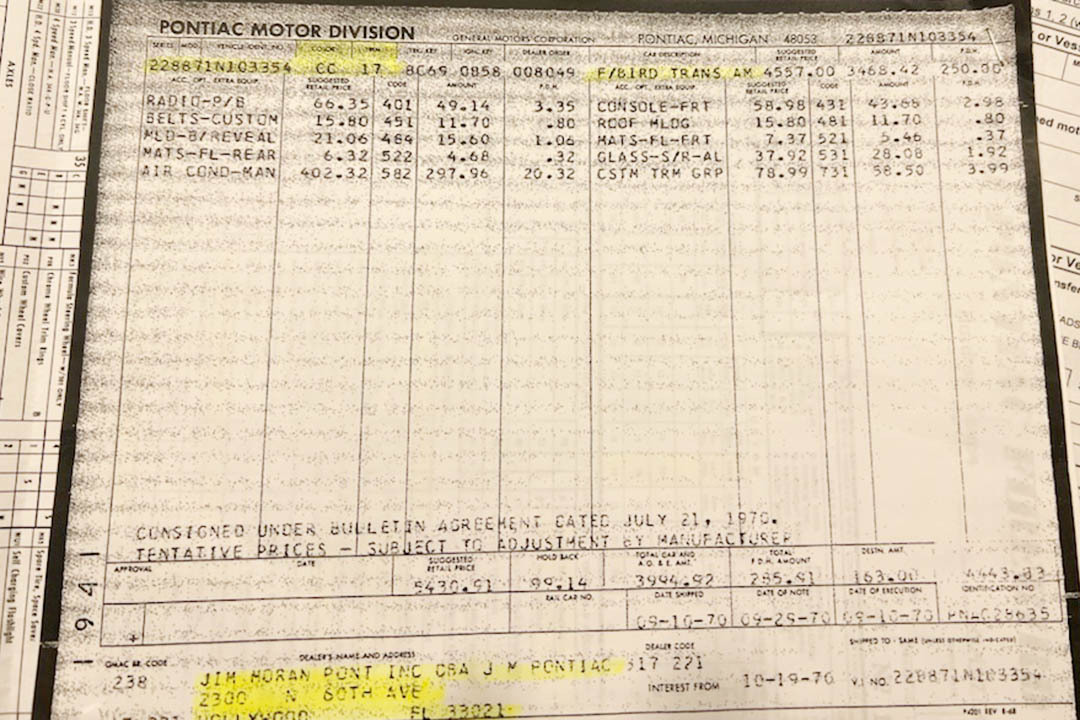 PONTIAC MOTOR DIVISION GENERAL MOTORS CORPORATION PONTIAC, MICHIGAN 48053 228871N103354
SERIES MOD. VEHICLE IDENT. NO. COLOR TRIM TRK. KEY IGN. KEY DEALER ORDER CAR DESCRIPTION SUGGESTED RETAIL PRICE AMOUNT F.D.H.
228871N103354 CC 17 8C69 0858 008049 F/BIRD TRANS AM 4557.00 3468.42 250.00
ACC. OPT. EXTRA EQUIP. SUGGESTED RETAIL PRICE CODE AMOUNT F.D.H. ACC. OPT. EXTRA EQUIP. SUGGESTED RETAIL PRICE CODE AMOUNT F.D.H.
RADIO-P/B 66.35 401 49.14 3.35 CONSOLE-FRT 58.98 431 43.68 2.98
BELTS-CUSTOM 15.80 451 11.70 .80 ROOF MLDG 15.80 481 11.70 .80
MLD-B/REVEAL 21.06 484 15.60 1.06 MATS-FL-FRT 7.37 521 5.46 .37
MATS-FL-REAR 6.32 522 4.68 .32 GLASS-S/R-AL 37.92 531 28.08 1.92
AIR COND-MAN 402.32 582 297.96 20.32 CSTM TRM GRP 78.99 731 58.50 3.99
CONSIGNED UNDER BULLETIN AGREEMENT DATED JULY 21, 1970.
TENTATIVE PRICES - SUBJECT TO ADJUSTMENT BY MANUFACTURER
APPROVAL DATE SUGGESTED RETAIL PRICE HOLD BACK TOTAL CAR AND A.O. & E. AMT. TOTAL F.D.H. AMOUNT DESTN. AMT.
5430.91 99.14 3994.92 285.91 163.00 4443.83
RAIL CAR NO. DATE SHIPPED DATE OF NOTE DATE OF EXECUTION IDENTIFICATION NO.
09-10-70 09-29-70 09-10-70
1941
GMAC BR. CODE DEALER'S NAME AND ADDRESS DEALER CODE SHIPPED TO - SAME (UNLESS OTHERWISE INDICATED)
238 JIM MORAN PONT INC DBA J M PONTIAC 517 221
2300 N 60TH AVE INTEREST FROM 10-19-70 V.I. NO. 228871N103354
HOLLYWOOD FL 33021
AXLES
Custom Wheel Covers
Chrome Wheel Trim Rings
Spare Tire, Space Saver